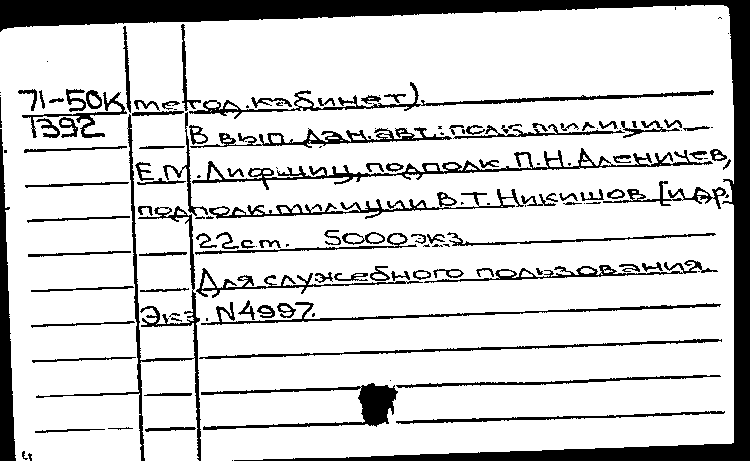 71-50К метод.кабинет).
1392 В вып. дан.авт.: полк.милиции
Е.М.Лифшиц, подполк. П.Н.Аленичев,
подполк.милиции В.Т.Никишов [и др.]
22 ст. 5000 экз.
Для служебного пользования.
Экз. N4997.